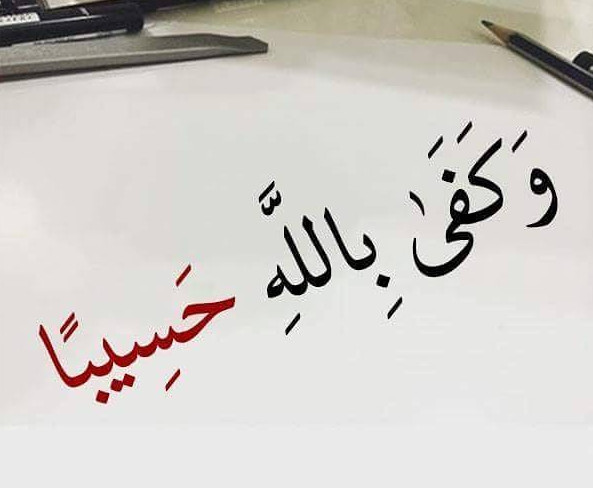 وَكَفَىٰ بِاللَّهِ حَسِيبًا